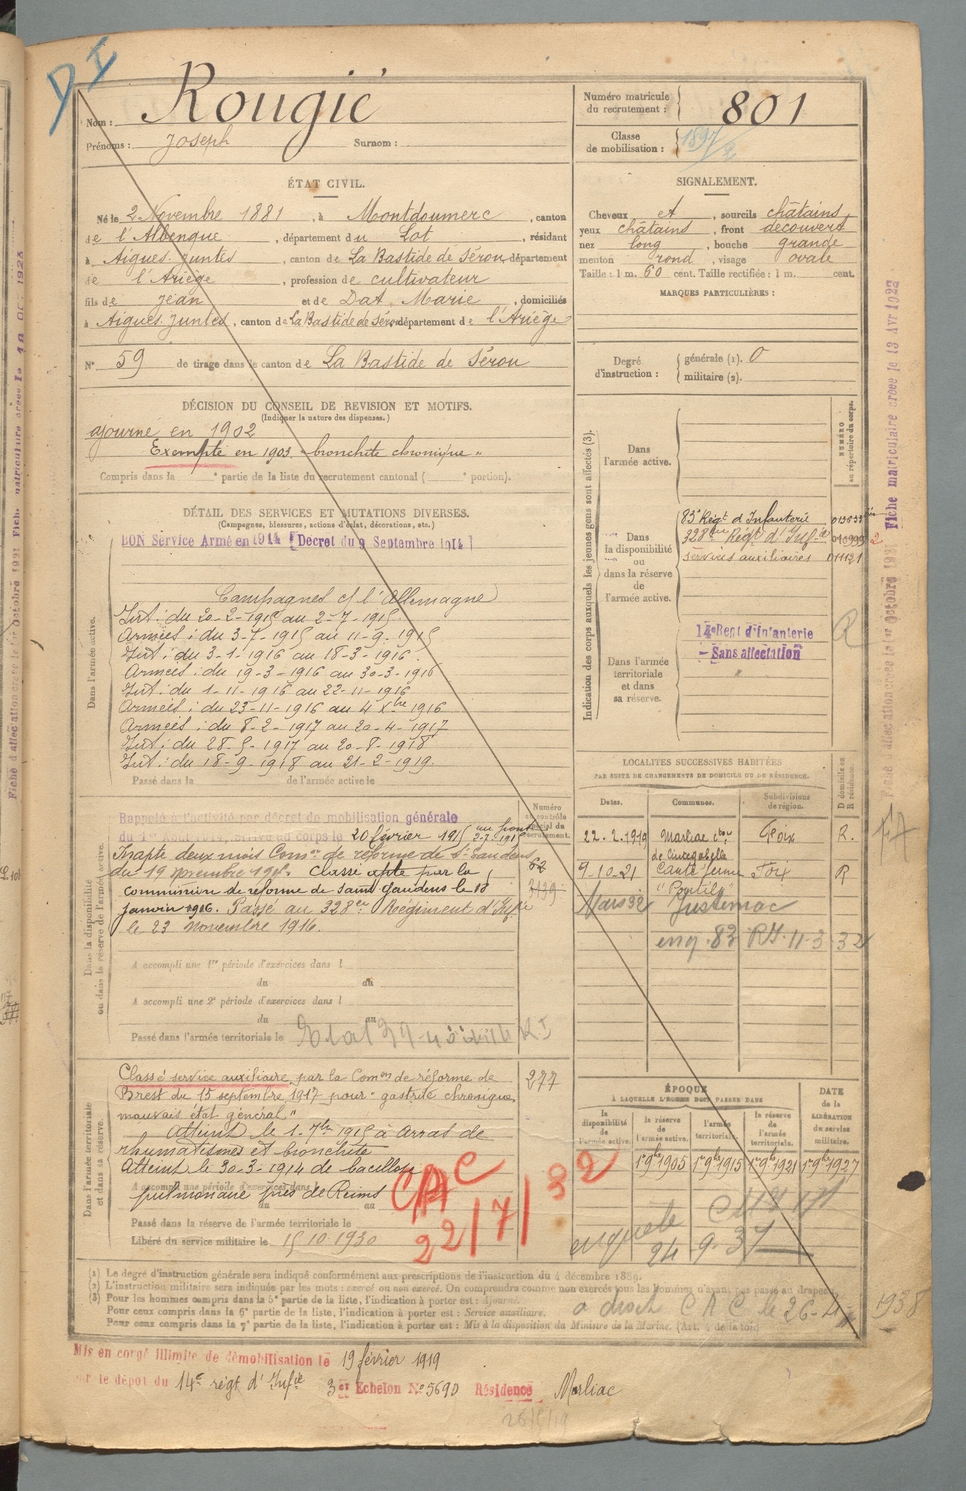 Nom : Rougié
Prénoms : Joseph Surnom :
Numéro matricule du recrutement : 801
Classe de mobilisation : 1897/2
ÉTAT CIVIL.
Né le 2 Novembre 1881, à Montdoumerc, canton
de l'Albenque, département du Lot, résidant
à Aigues-Juntes, canton de La Bastide de Sérou département
de l'Ariège, profession de cultivateur
fils de Jean et de Dat, Marie, domiciliés
à Aigues-Juntes, canton de La Bastide de Sérou département de l'Ariège
N° 59 de tirage dans le canton de La Bastide de Sérou
SIGNALEMENT.
Cheveux et, sourcils châtains,
yeux châtains, front découvert
nez long, bouche grande
menton rond, visage ovale
Taille : 1 m. 60 cent. Taille rectifiée : 1 m. cent.
MARQUES PARTICULIÈRES :
Degré d'instruction : générale (1). 0
militaire (2).
DÉCISION DU CONSEIL DE REVISION ET MOTIFS.
(Indiquer la nature des dispenses.)
ajourné en 1902
Exempté en 1903 "bronchite chronique"
Compris dans la e partie de la liste du recrutement cantonal ( e portion).
DÉTAIL DES SERVICES ET MUTATIONS DIVERSES.
(Campagnes, blessures, actions d'éclat, décorations, etc.)
BON Service Armé en 1914 [Décret du 9 Septembre 1914]
Dans l'armée active.
Campagnes ct l'Allemagne
Int. : du 20-2-1915 au 2-7-1915
Armées : du 3-7-1915 au 11-9-1915
Int. : du 3-1-1916 au 18-3-1916.
Armées : du 19-3-1916 au 30-3-1916
Int. : du 1-11-1916 au 22-11-1916
Armées : du 23-11-1916 au 4 Xbre 1916
Armées : du 8-2-1917 au 20-4-1917
Int. : du 28-5-1917 au 20-8-1918
Int. : du 18-9-1918 au 21-2-1919.
Passé dans la de l'armée active le
Indication des corps auxquels les jeunes gens sont affectés (3).
NUMÉRO au répertoire du corps.
Dans l'armée active.
Dans la disponibilité ou dans la réserve de l'armée active.
83e Régt d'Infanterie
328e Régt d'Infie
Services auxiliaires 011121
Dans l'armée territoriale et dans sa réserve.
14e Regt d'Infanterie
- Sans affectation
Dans la disponibilité ou dans la réserve de l'armée active.
Rappelé à l'activité par décret de mobilisation générale
du 1er Août 1914, arrivé au corps le 20 février 1915 au front 2-7-1915
Inapte deux mois Comon de réforme de St Gaudens
du 19 novembre 1915. Classé apte par la
commission de réforme de Saint Gaudens le 18
Janvier 1916. Passé au 328e Régiment d'Infie
le 23 Novembre 1916.
62
A accompli une 1re période d'exercices dans l
du au
A accompli une 2e période d'exercices dans l
du au
Passé dans l'armée territoriale le
LOCALITÉS SUCCESSIVES HABITÉES
PAR SUITE DE CHANGEMENTS DE DOMICILE OU DE RÉSIDENCE.
Dates. Communes. Subdivisions de région. D domicile ou R résidence.
22-2-1919 Marliac con de Cintegabelle Foix R.
9-10-21 Canté ferme "Pontil" Foix R
Mars 32 Justiniac
enq. 83 RI. 11-3-32
Dans l'armée territoriale et dans sa réserve.
Classé service auxiliaire par la Comon de réforme de
Brest du 15 septembre 1917 pour "gastrite chronique,
mauvais état général."
277
Atteint le 1-7bre 1915 à Arras de
rhumatismes et bronchite
Atteint le 30-3-1914 de bacillose
A accompli une période d'exercices dans
pulmonaire près de Reims
du au
Passé dans la réserve de l'armée territoriale le
Libéré du service militaire le 15 10 1930
CAC
22/7/32
ÉPOQUE
À LAQUELLE L'HOMME DOIT PASSER DANS
la disponibilité de l'armée active. la réserve de l'armée active. l'armée territoriale. la réserve de l'armée territoriale.
DATE de la LIBÉRATION du service militaire.
1er 9bre 1905 1er 9bre 1915 1er 9bre 1921 1er 9bre 1927
enquete
24 9. 37
(1) Le degré d'instruction générale sera indiqué conformément aux prescriptions de l'instruction du 4 décembre 1889.
(2) L'instruction militaire sera indiquée par les mots : exercé ou non exercé. On comprendra comme non exercés tous les hommes n'ayant pas passé au drapeau.
(3) Pour les hommes compris dans la 5e partie de la liste, l'indication à porter est : Ajourné.
Pour ceux compris dans la 6e partie de la liste, l'indication à porter est : Service auxiliaire.
Pour ceux compris dans la 7e partie de la liste, l'indication à porter est : Mis à la disposition du Ministre de la Marine.
Mis en congé illimité de démobilisation le 19 février 1919
par le dépôt du 14e régt d'Infie 3e Echelon No 5690 Résidence Marliac